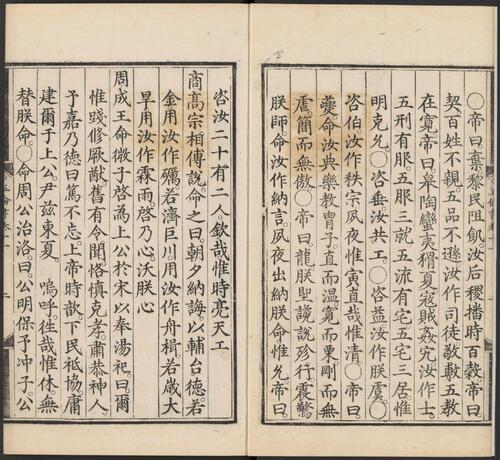 ○帝曰。棄。黎民阻飢。汝后稷。播時百穀。帝曰。
契。百姓不親。五品不遜。汝作司徒。敬敷五教
在寬。帝曰。皐陶。蠻夷猾夏。寇賊姦宄。汝作士。
五刑有服。五服三就。五流有宅。五宅三居。惟
明克允。○咨垂。汝共工。○咨益。汝作朕虞。○
咨伯。汝作秩宗。夙夜惟寅。直哉惟清。○帝曰。
夔。命汝典樂。教冑子。直而溫。寬而栗。剛而無
虐。簡而無傲。○帝曰。龍。朕堲讒說殄行。震驚
朕師。命汝作納言。夙夜出納朕命。惟允。帝曰。
咨汝二十有二人。欽哉。惟時亮天工。
商高宗相傅說。命之曰。朝夕納誨。以輔台德。若
金。用汝作礪。若濟巨川。用汝作舟楫。若歲大
旱。用汝作霖雨。啓乃心。沃朕心
周成王命微子啓為上公於宋。以奉湯祀。曰。爾
惟踐修厥猷。舊有令聞。恪慎克孝。肅恭神人。
予嘉乃德。曰篤不忘。上帝時歆。下民祗協。庸
建爾于上公。尹茲東夏。 嗚呼。往哉惟休。無
替朕命。○命周公治洛。曰。公。明保予冲子。公